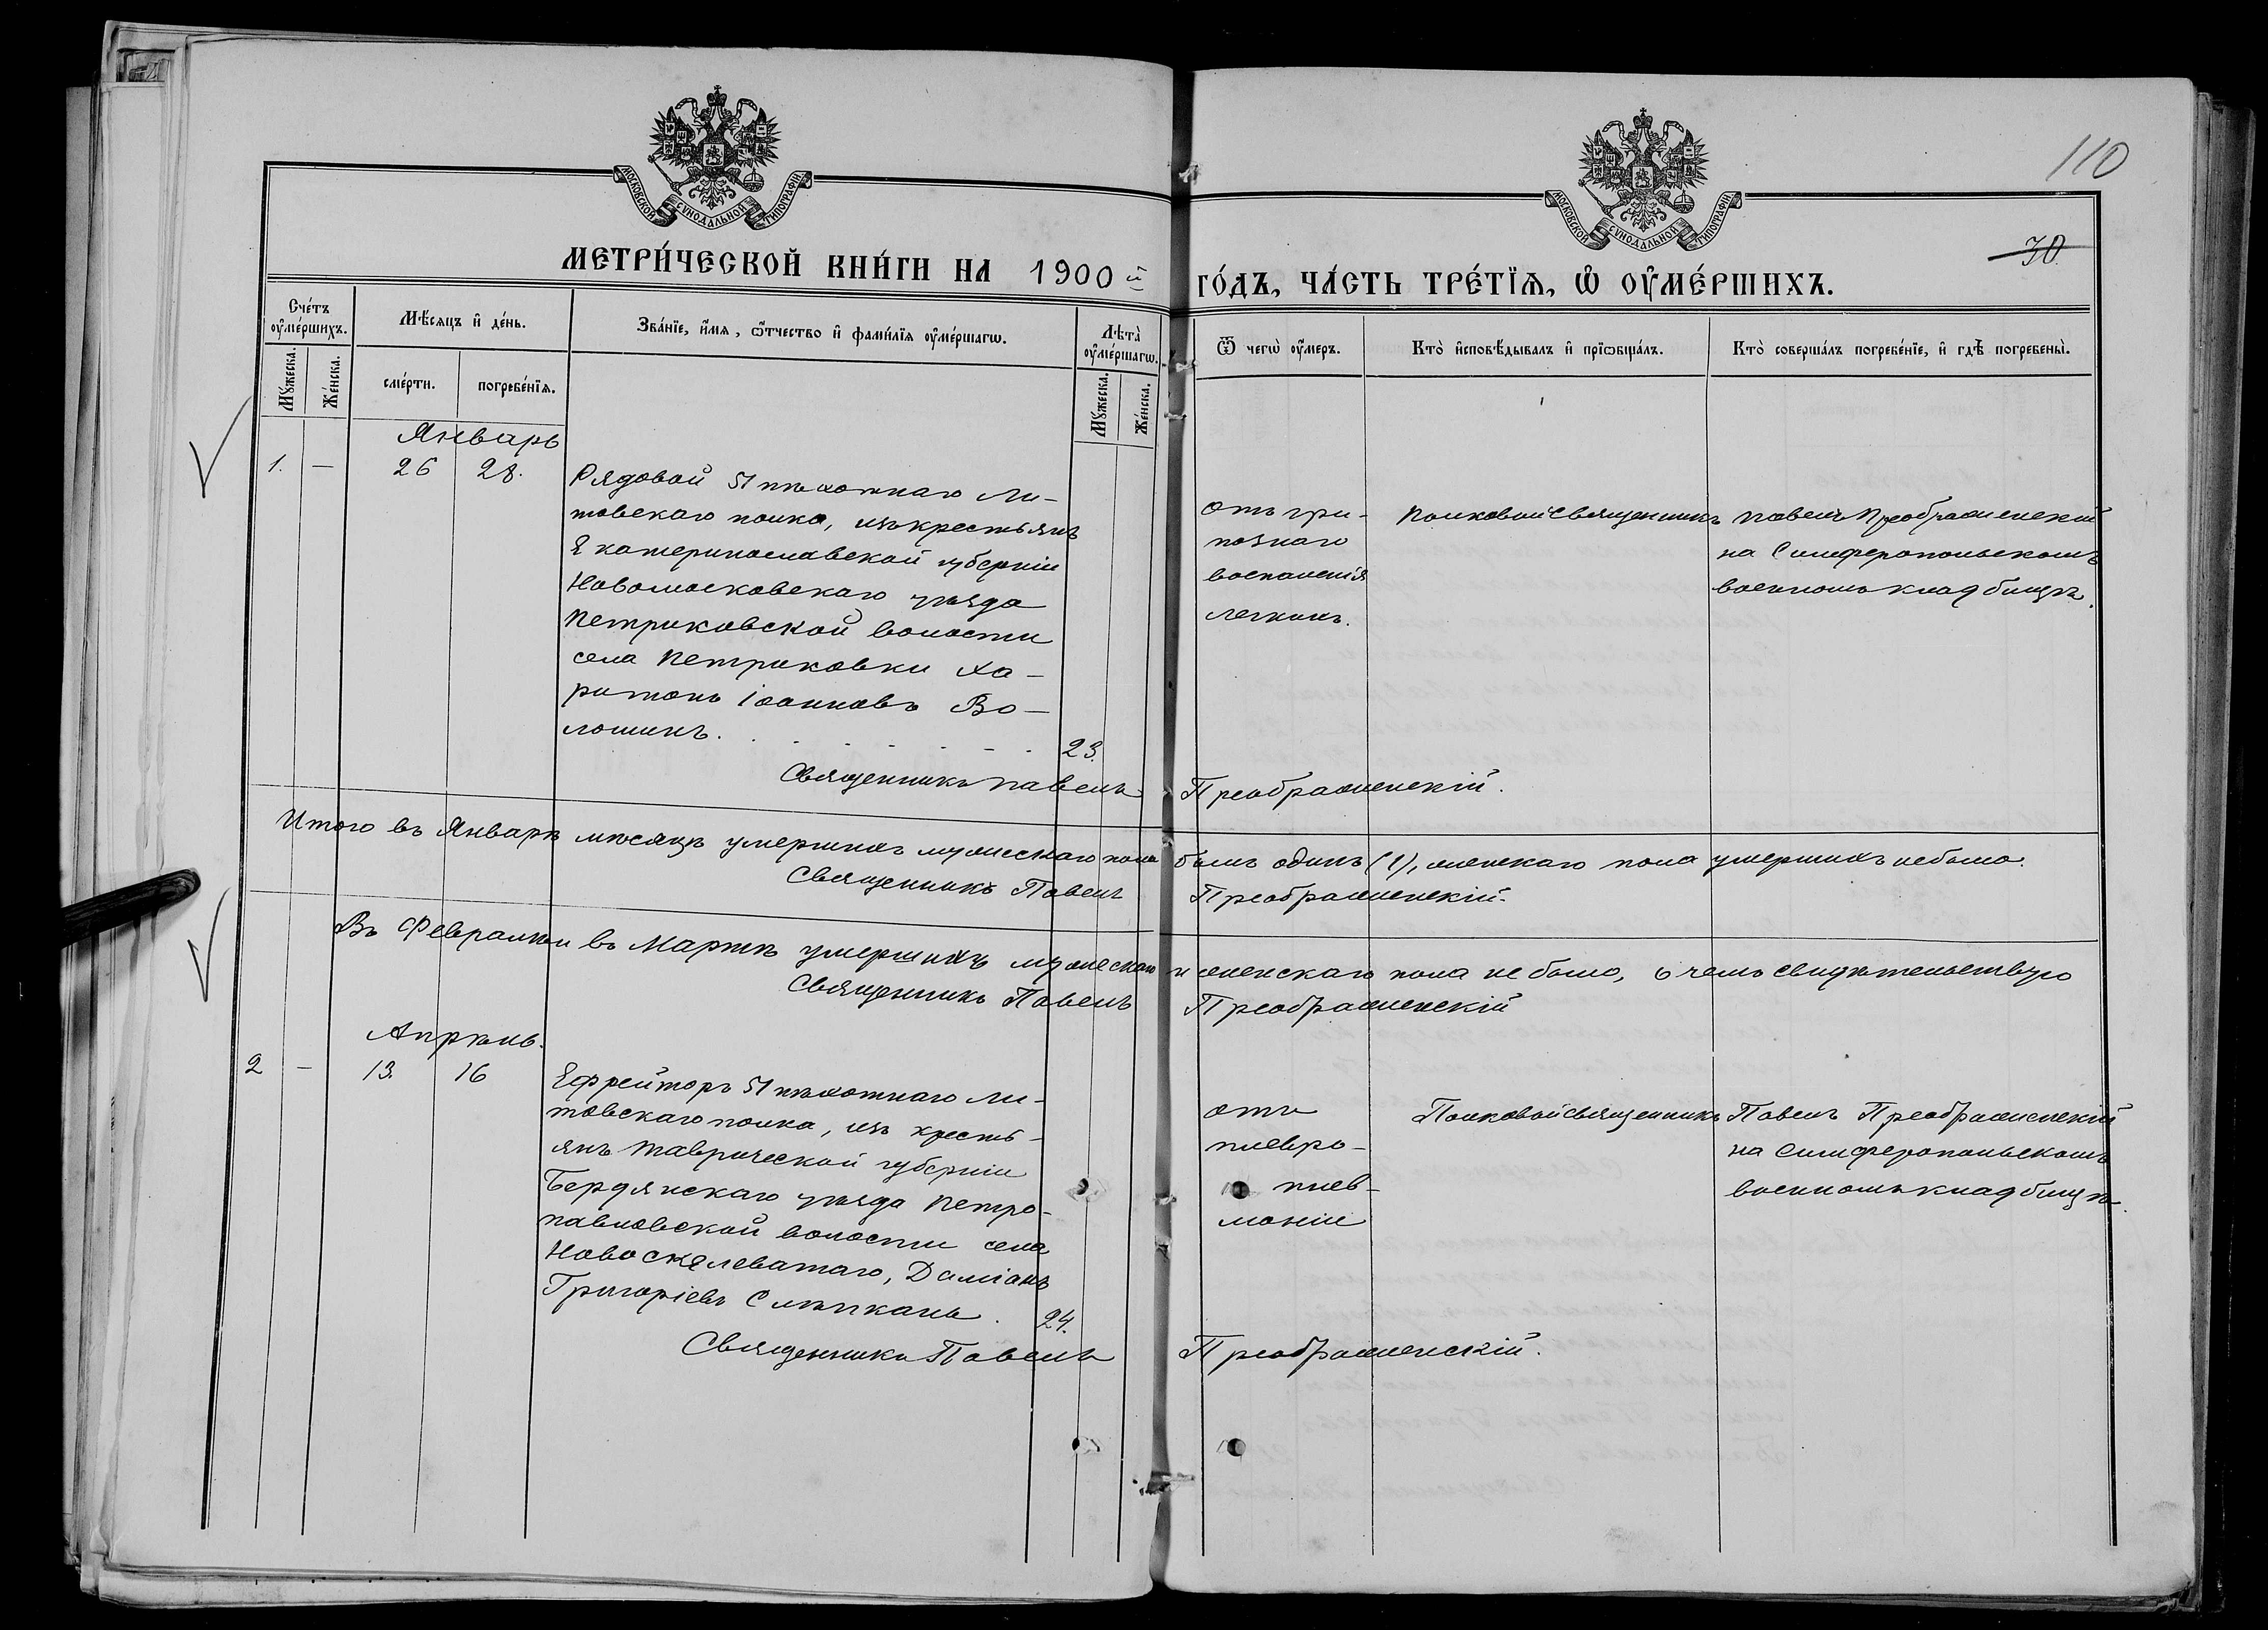 МОСКОВСКОЙ СУНОДАЛЬНОЙ ТИПОГРАФІИ
МОСКОВСКОЙ СУНОДАЛЬНОЙ ТИПОГРАФІИ
110
30
МЕТРИ́ЧЕСКОЙ КНИ́ГИ НА 1900й ГО́ДЪ, ЧА́СТЬ ТРЕ́ТІѦ, Ѽ ОУ҆МЕ́РШИХЪ.
Сче́тъ оу҆ме́ршихъ.
Мꙋ́жеска.
Же́нска.
Мѣ́сѧцъ и҆ де́нь.
сме́рти.
погребе́нїѧ.
Зва́нїе, и҆́мѧ, ѻ҆́тчество и҆ фами́лїѧ оу҆ме́ршагѡ.
Лѣ̀та оу҆ме́ршагѡ.
Мꙋ́жеска.
Же́нска.
Ѿ чегѡ̀ оу҆́меръ.
Кто̀ и҆сповѣ́дывалъ и҆ прїѡбща́лъ.
Кто̀ соверша́лъ погребе́нїе, и҆ гдѣ̀ погребены̀.
Январь
1. — 26 28.
Рядовой 51 пѣхотнаго Ли-
товскаго полка, изъ крестьянъ
Екатеринославской губерніи
Новомосковскаго уѣзда
Петриковской волости
села Петриковки Ха-
ритонъ Іоанновъ Во-
лошинъ. 23.
отъ гри-
познаго
воспаленія
легкихъ.
Полковой священникъ Павелъ Преображенскій
на Симферопольскомъ
военномъ кладбищѣ.
Священникъ Павелъ Преображенскій.
Итого въ Январѣ мѣсяцѣ умершихъ мужескаго пола былъ одинъ (1), женскаго пола умершихъ не было.
Священникъ Павелъ Преображенскій.
Въ Февралѣ и въ Мартѣ умершихъ мужескаго и женскаго пола не было, о чемъ свидѣтельствую
Священникъ Павелъ Преображенскій
Апрѣль.
2 — 13. 16
Ефрейторъ 51 пѣхотнаго Ли-
товскаго полка, изъ кресть-
янъ Таврической губерніи
Бердянскаго уѣзда Петро-
павловской волости села
Новоскелеватаго, Даміанъ
Григоріевъ Слѣпкань. 24.
отъ
плевро-
пнев-
моніи
Полковой священникъ Павелъ Преображенскій
на Симферопольскомъ
военномъ кладбищѣ.
Священникъ Павелъ Преображенскій.